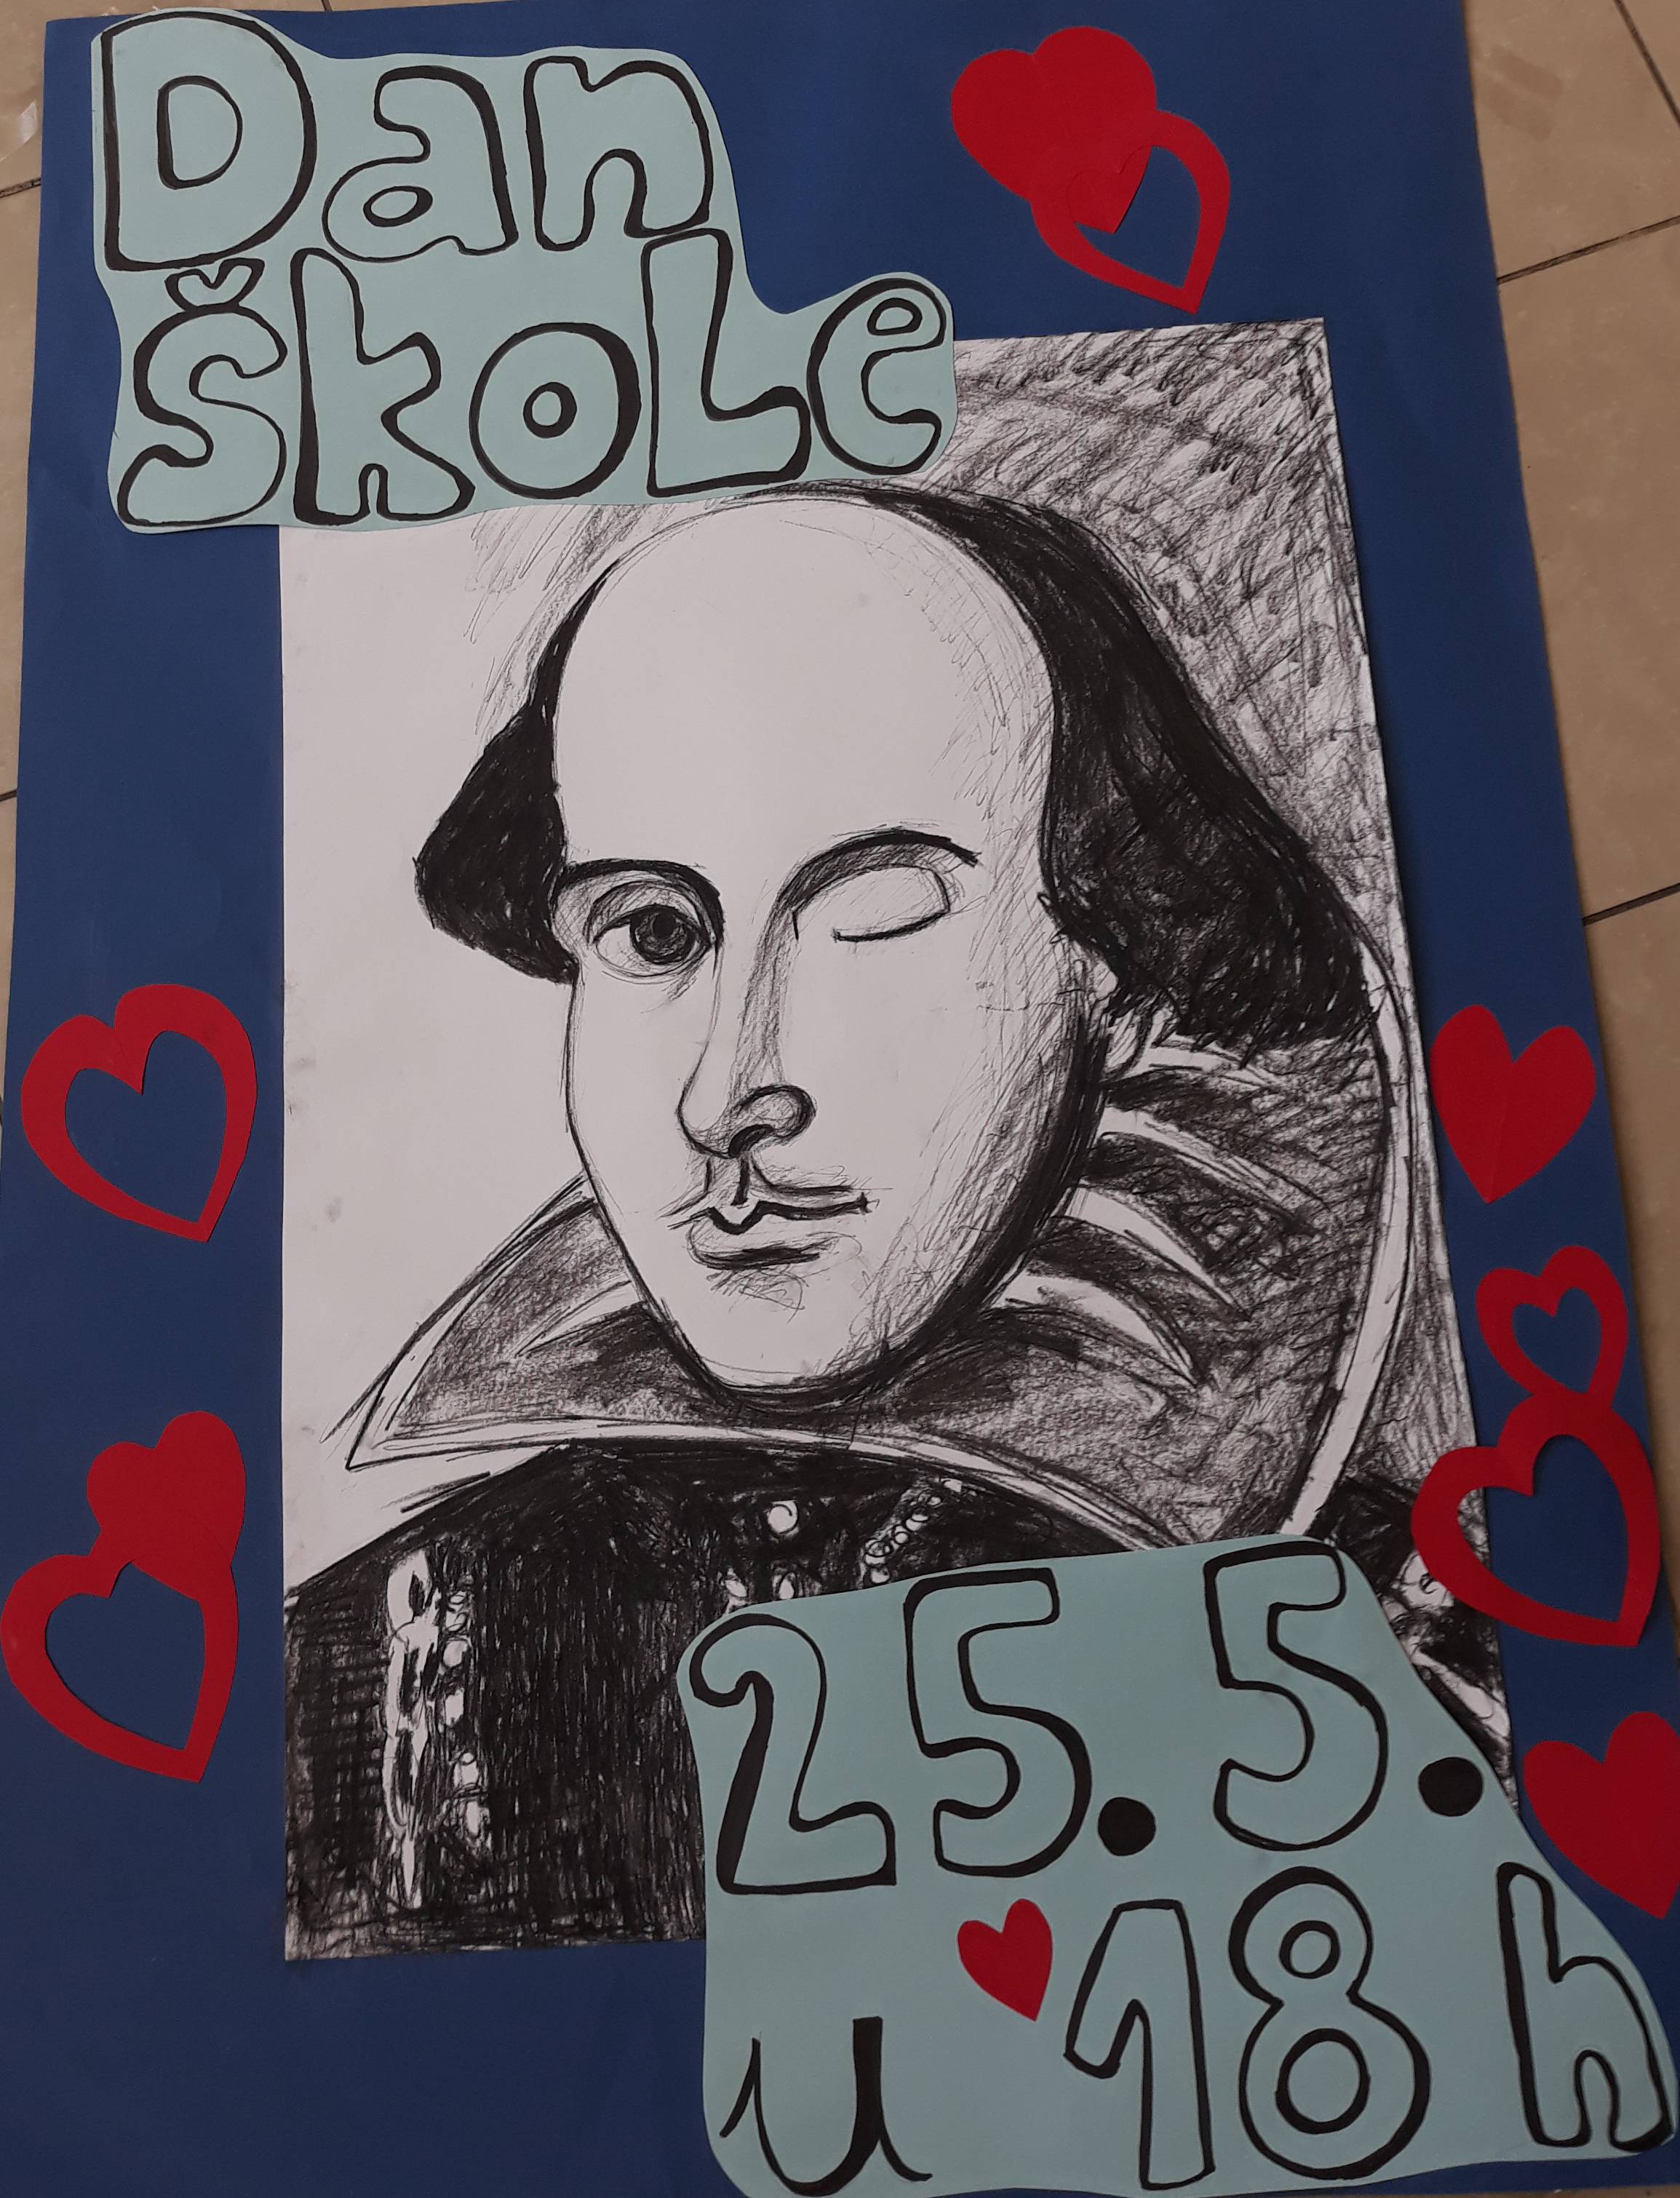 Dan
škoLe
25. 5.
u 18 h